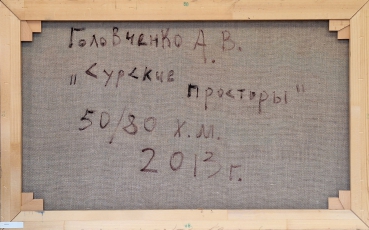 Головченко А. В.
„Сурские просторы"
50/80 х.м.
2013 г.